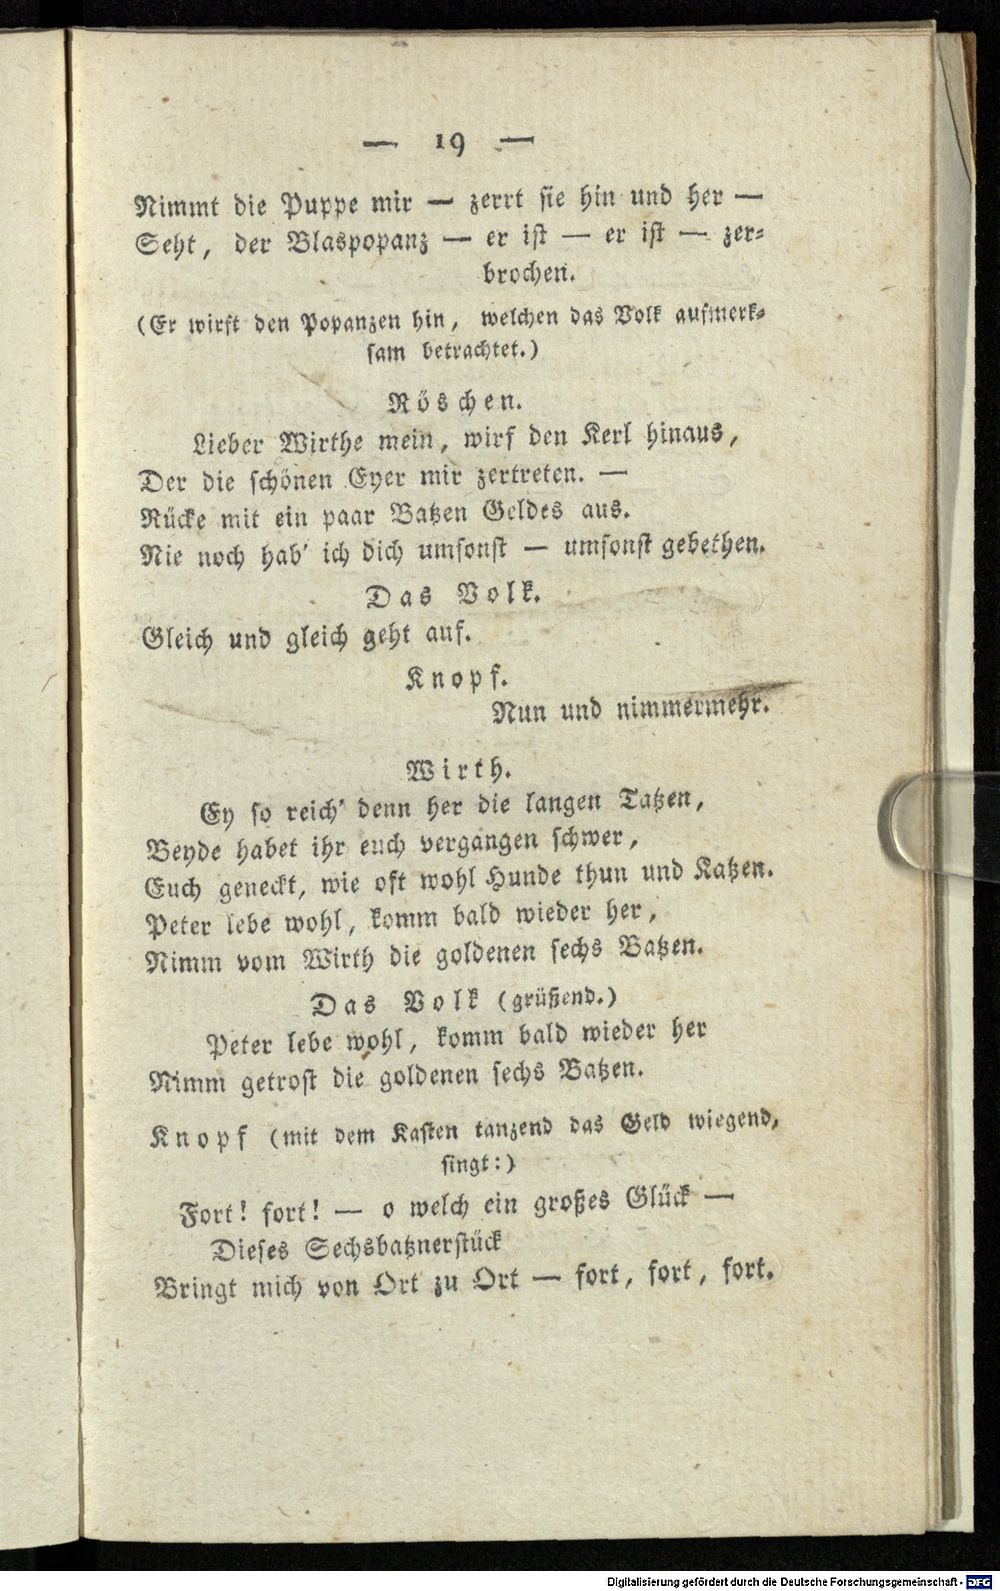 — 19 —
Nimmt die Puppe mir — zerrt sie hin und her —
Seht, der Blaspopanz — er ist — er ist — zer-
brochen.
(Er wirft den Popanzen hin, welchen das Volk aufmerk-
sam betrachtet.)
Röschen.
Lieber Wirthe mein, wirf den Kerl hinaus,
Der die schönen Eyer mir zertreten. —
Rücke mit ein paar Batzen Geldes aus.
Nie noch hab' ich dich umsonst — umsonst gebethen.
Das Volk.
Gleich und gleich geht auf.
Knopf.
Nun und nimmermehr.
Wirth.
Ey so reich' denn her die langen Tatzen,
Beyde habet ihr euch vergangen schwer,
Euch geneckt, wie oft wohl Hunde thun und Katzen.
Peter lebe wohl, komm bald wieder her,
Nimm vom Wirth die goldenen sechs Batzen.
Das Volk (grüßend.)
Peter lebe wohl, komm bald wieder her
Nimm getrost die goldenen sechs Batzen.
Knopf (mit dem Kasten tanzend das Geld wiegend,
singt:)
Fort! fort! — o welch ein großes Glück —
Dieses Sechsbatznerstück
Bringt mich von Ort zu Ort — fort, fort, fort.
Digitalisierung gefördert durch die Deutsche Forschungsgemeinschaft - DFG